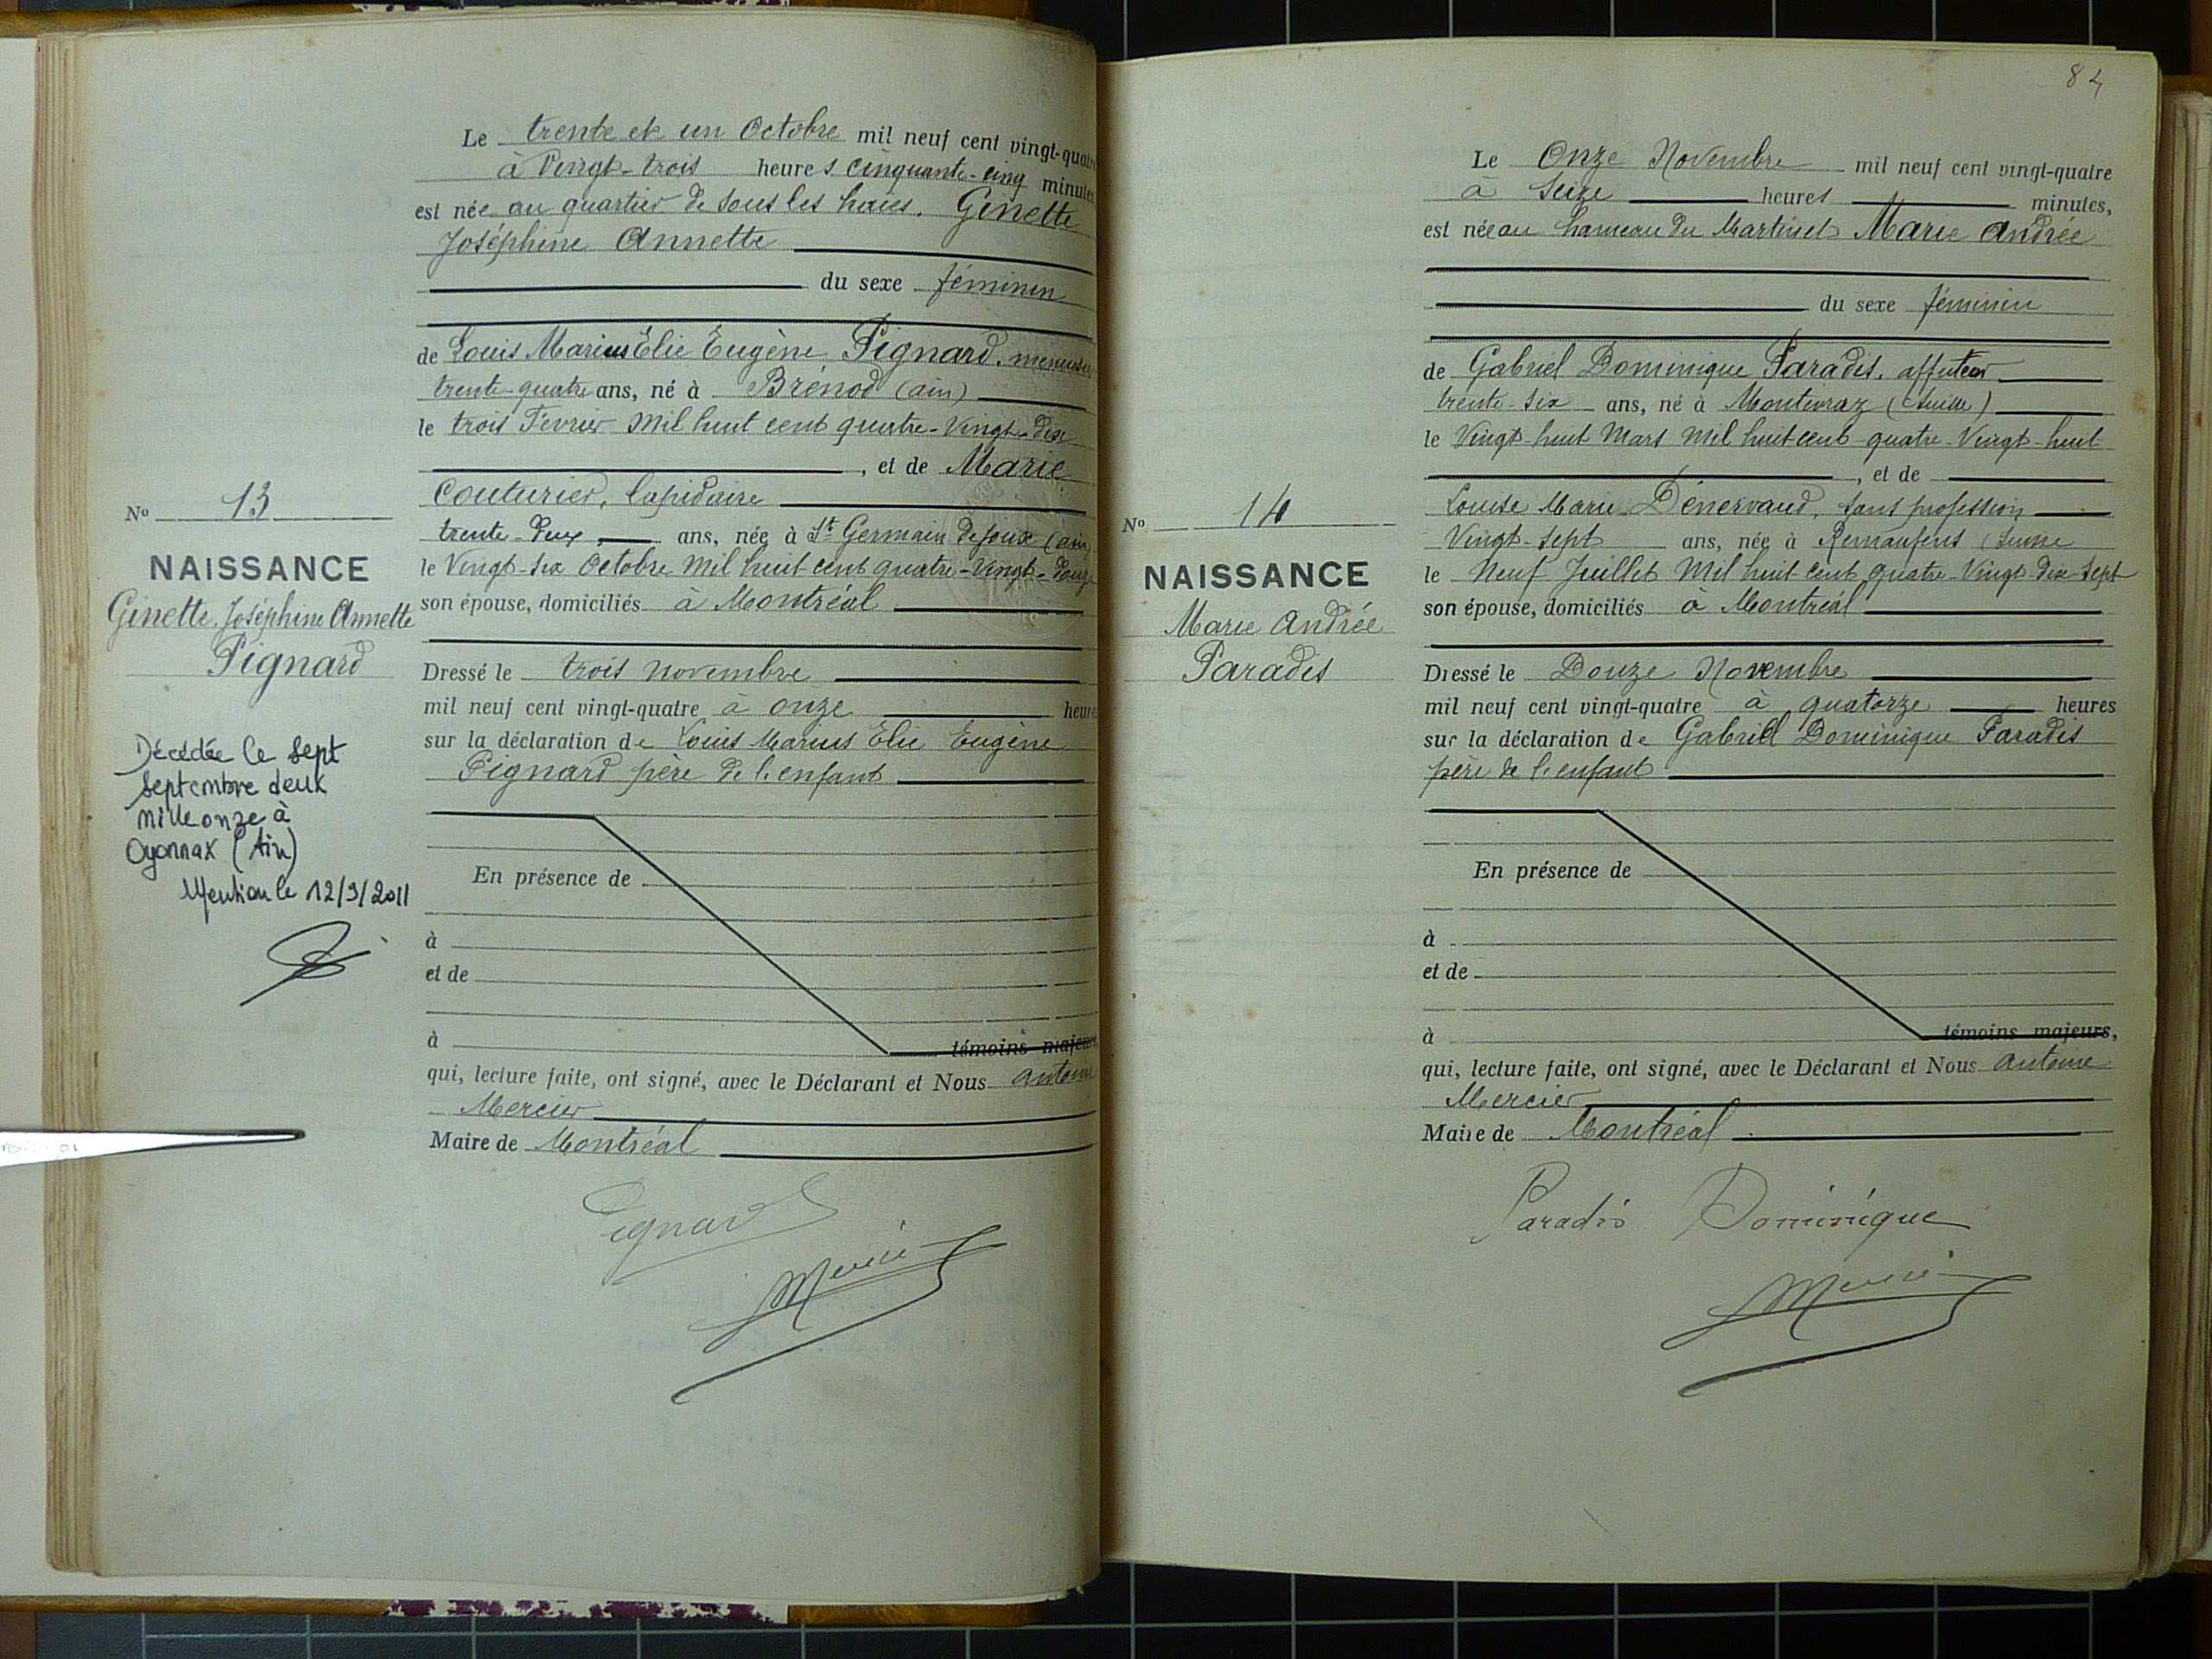 Le trente et un Octobre mil neuf cent vingt-quatre
à Vingt-trois heures cinquante-cinq minutes
est née au quartier de sous les haies. Ginette
Joséphine Annette
du sexe féminin
de Louis Marius Elie Eugène Pignard. menuisier
trente-quatre ans, né à Brénod (ain)
le trois Février mil huit cent quatre-Vingt-dix
, et de Marie
Couturier, lapidaire
trente-deux ans, née à St Germain de Joux (ain)
le Vingt-six Octobre mil huit cent quatre-Vingt-douze
son épouse, domiciliés à Montréal
Dressé le trois novembre
mil neuf cent vingt-quatre à onze heures
sur la déclaration de Louis Marius Elie Eugène
Pignard père de l'enfant
En présence de
à
et de
à témoins majeurs
qui, lecture faite, ont signé, avec le Déclarant et Nous antoine
Mercier
Maire de Montréal
Pignard
Mercier
No 13
NAISSANCE
Ginette Joséphine Annette
Pignard
Décédée le sept
septembre deux
mille onze à
Oyonnax (Ain)
Mention le 12/9/2011
84
Le Onze Novembre mil neuf cent vingt-quatre
à Seize heures minutes,
est née au hameau du Martinet Marie andrée
du sexe féminin
de Gabriel Dominique Paradis, affuteur
trente-six ans, né à Montevraz (Suisse)
le Vingt huit Mars mil huit cent quatre-Vingt-huit
, et de
Louise Marie Dénervaud, sans profession
Vingt-sept ans, née à Remaufens (Suisse
le Neuf Juillet Mil huit cent quatre-Vingt-dix sept
son épouse, domiciliés à Montréal
Dressé le Douze Novembre
mil neuf cent vingt-quatre à quatorze heures
sur la déclaration de Gabriel Dominique Paradis
père de l'enfant
En présence de
à
et de
à témoins majeurs,
qui, lecture faite, ont signé, avec le Déclarant et Nous antoine
Mercier
Maire de Montréal
Paradis Dominique
Mercier
No 14
NAISSANCE
Marie andrée
Paradis